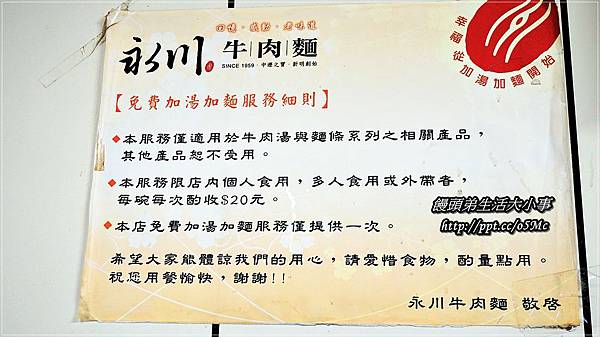 回憶。感動。老味道
永川 牛|肉|麵
SINCE 1959。中壢之寶。新明創始
幸福 從加湯加麵開始
【免費加湯加麵服務細則】
◆本服務僅適用於牛肉湯與麵條系列之相關產品，
其他產品恕不受用。
◆本服務限店內個人食用，多人食用或外帶者，
每碗每次酌收$20元。
◆本店免費加湯加麵服務僅提供一次。
希望大家能體諒我們的用心，請愛惜食物，酌量點用。
祝您用餐愉快，謝謝!!
永川牛肉麵 敬啓
饅頭弟生活大小事
http://ppt.cc/o5Mc